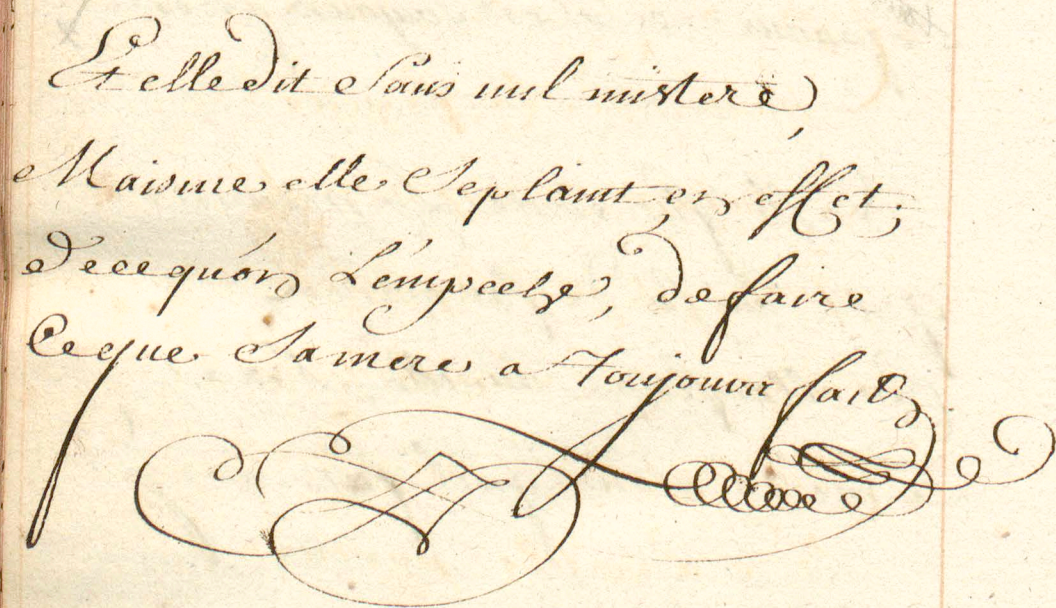 Et elle dit Sans nul mistere,
Maisme elle Seplaint en effet,
De ce qu'on L'émpeche, de faire
Ce que Samere a Toujours fait